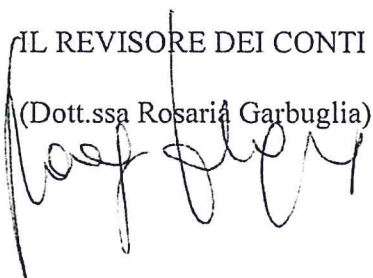 IL REVISORE DEI CONTI
(Dott.ssa Rosaria Garbuglia)